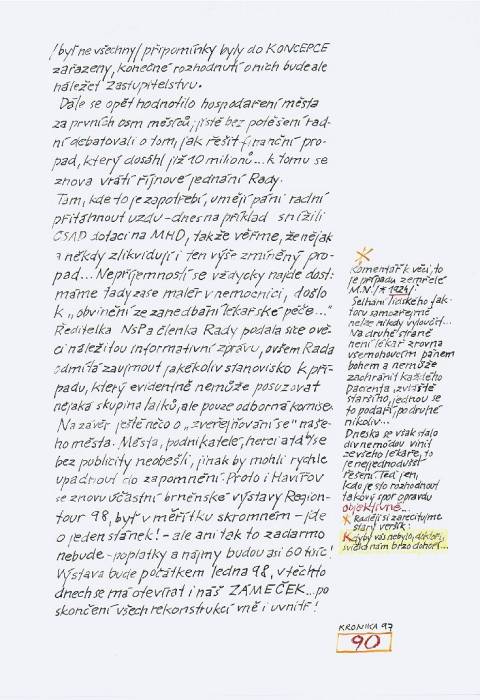 /byť ne všechny/ připomínky byly do KONCEPCE
zařazeny, konečné rozhodnutí o nich bude ale
náležet Zastupitelstvu.
Dále se opět hodnotilo hospodaření města
za prvních osm měsíců; jistě bez potěšení rad-
ní debatovali o tom, jak řešit finanční pro-
pad, který dosáhl již 10 milionů... k tomu se
znova vrátí říjnové jednání Rady.
Tam, kde to je zapotřebí, umějí páni radní
přitáhnout uzdu - dnes na příklad snížili
ČSAD dotaci na MHD, takže věřme, že nějak
a někdy zlikvidují i ten výše zmíněný pro-
pad... Nepříjemností se vždycky najde dost:
máme tady zase malér v nemocnici, došlo
k „obvinění ze zanedbání lékařské péče..."
Ředitelka NsP a členka Rady podala sice o vě-
ci náležitou informativní zprávu, ovšem Rada
odmítla zaujmout jakékoliv stanovisko k pří-
padu, který evidentně nemůže posuzovat
nějaká skupina laiků, ale pouze odborná komise.
Na závěr ještě něco o „zveřejňování se" naše-
ho města. Města, podnikatelé, herci atd. by se
bez publicity neobešli, jinak by mohli rychle
upadnout do zapomnění. Proto i Havířov
se znovu účastní brněnské výstavy Region-
tour 98, byť v měřítku skromném - jde
o jeden stánek! - ale ani tak to zadarmo
nebude - poplatky a nájmy budou asi 60 tisíc!
Výstava bude počátkem ledna 98, v těchto
dnech se má otevírat i náš ZÁMEČEK... po
skončení všech rekonstrukcí vně i uvnitř!
Komentář k věci, to
je případu zemřelé
M.N. /* 1924/:
Selhání lidského fak-
toru samozřejmě
nelze nikdy vyloučit...
Na druhé straně
není lékař zrovna
všemohoucím pánem
bohem a nemůže
zachránit každého
pacienta, zvláště
staršího, jednou se
to podaří, podruhé
nikoliv...
Dneska se však stalo
div ne módou vinit
ze všeho lékaře, to
je nejjednodušší
řešení. Teď jen,
kdo je sto rozhodnout
takový spor opravdu
objektivně...
x Raději si zarecitujme
starý veršík:
Kdyby vás nebylo, doktoři,
svíčka nám brzo dohoří...
KRONIKA 97
90